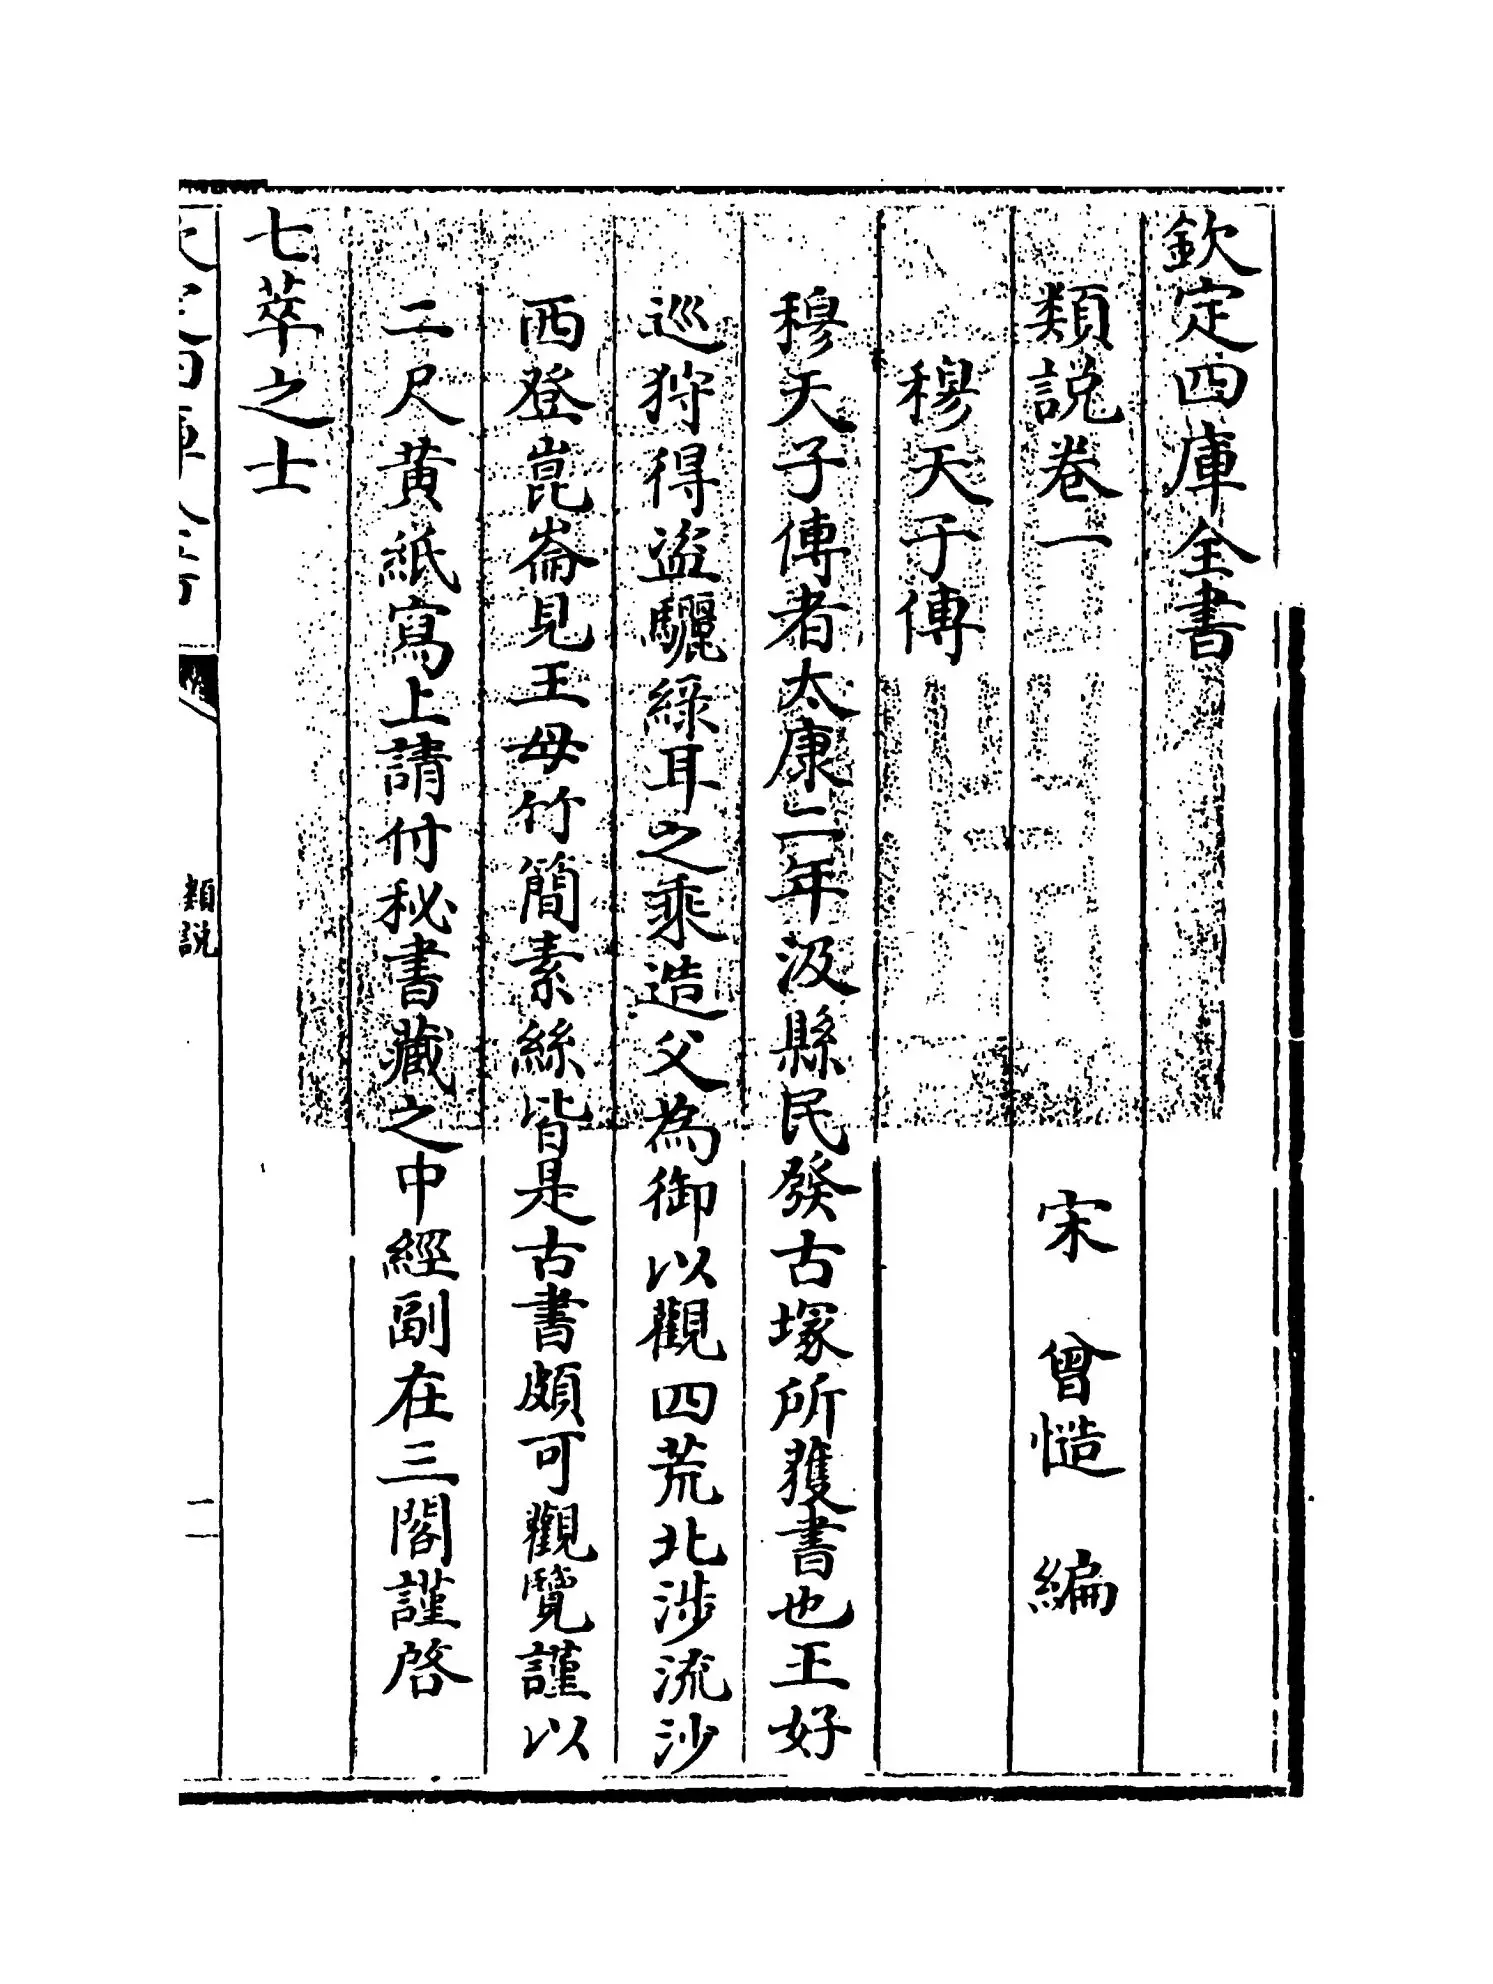 欽定四庫全書
類說卷一
宋 曾慥 編
穆天子傳
穆天子傳者太康二年汲縣民發古塚所獲書也王好
巡狩得盜驪綠耳之乘造父為御以觀四荒北涉流沙
西登崑崙見王母竹簡素絲皆是古書頗可觀覽謹以
二尺黃紙寫上請付秘書藏之中經副在三閣謹啓
七萃之士
類說
一